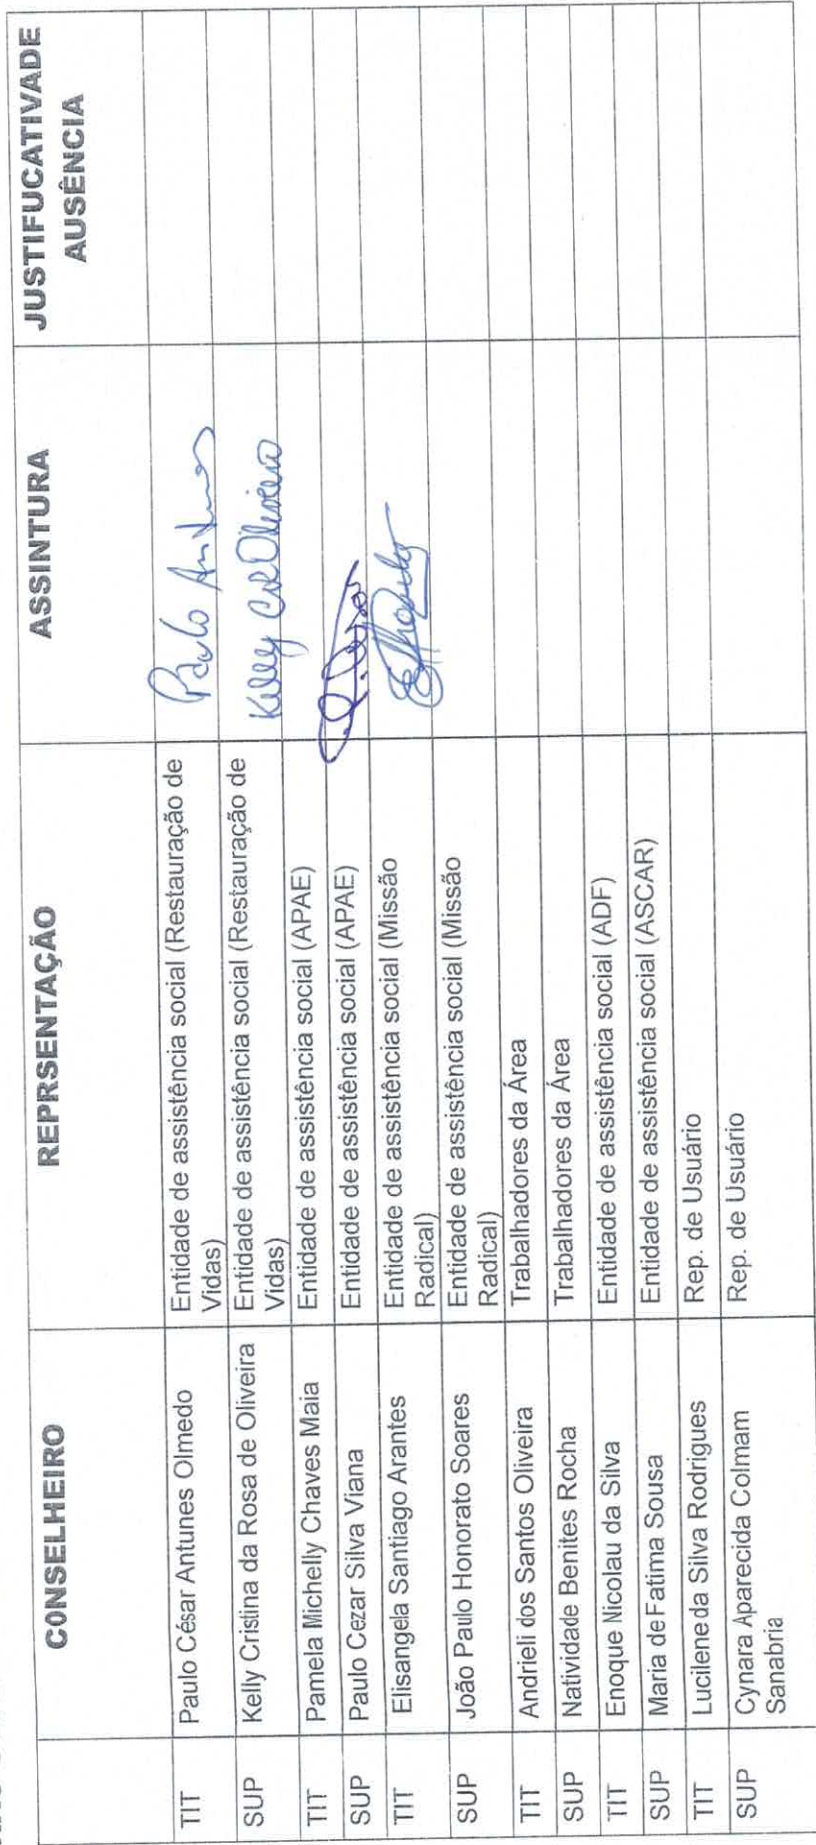 CONSELHEIRO REPRSENTAÇÃO ASSINTURA JUSTIFUCATIVADE
AUSÊNCIA
TIT Paulo César Antunes Olmedo Entidade de assistência social (Restauração de
Vidas) Paulo Antunes
SUP Kelly Cristina da Rosa de Oliveira Entidade de assistência social (Restauração de
Vidas) Kelly C R Oliveira
TIT Pamela Michelly Chaves Maia Entidade de assistência social (APAE)
SUP Paulo Cezar Silva Viana Entidade de assistência social (APAE)
TIT Elisangela Santiago Arantes Entidade de assistência social (Missão
Radical)
SUP João Paulo Honorato Soares Entidade de assistência social (Missão
Radical)
TIT Andrieli dos Santos Oliveira Trabalhadores da Área
SUP Natividade Benites Rocha Trabalhadores da Área
TIT Enoque Nicolau da Silva Entidade de assistência social (ADF)
SUP Maria de Fatima Sousa Entidade de assistência social (ASCAR)
TIT Lucilene da Silva Rodrigues Rep. de Usuário
SUP Cynara Aparecida Colmam
Sanabria Rep. de Usuário